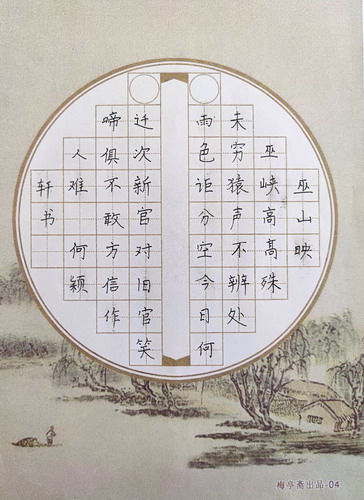 巫山映
巫峡高高殊
未穷猿声不辨处
雨色讵分空今日何
迁次新官对旧官笑
啼俱不敢方信作
人难 何颖
轩书
梅亭斋出品-04